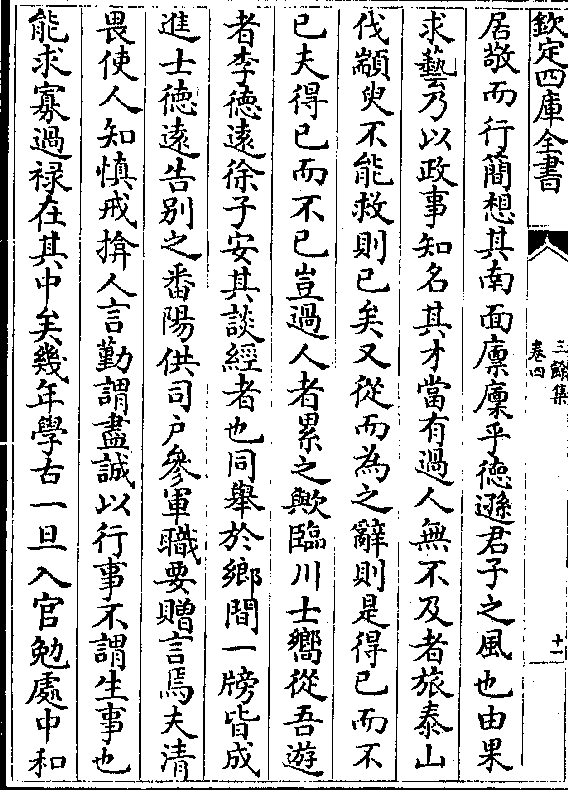 欽定四庫全書
三餘集
卷四
十二
居敬而行簡想其南面廩廩乎徳遜君子之風也由果
求藝乃以政事知名其才當有過人無不及者旅泰山
伐顓臾不能救則已矣又從而為之辭則是得已而不
已夫得已而不已豈過人者累之歟臨川士嚮從吾遊
者李徳遠徐子安其談經者也同舉於鄉間一牓皆成
進士徳遠告别之番陽供司户參軍職要贈言焉夫清
畏使人知慎戒揜人言勤謂盡誠以行事不謂生事也
能求寡過禄在其中矣幾年學古一旦入官勉處中和